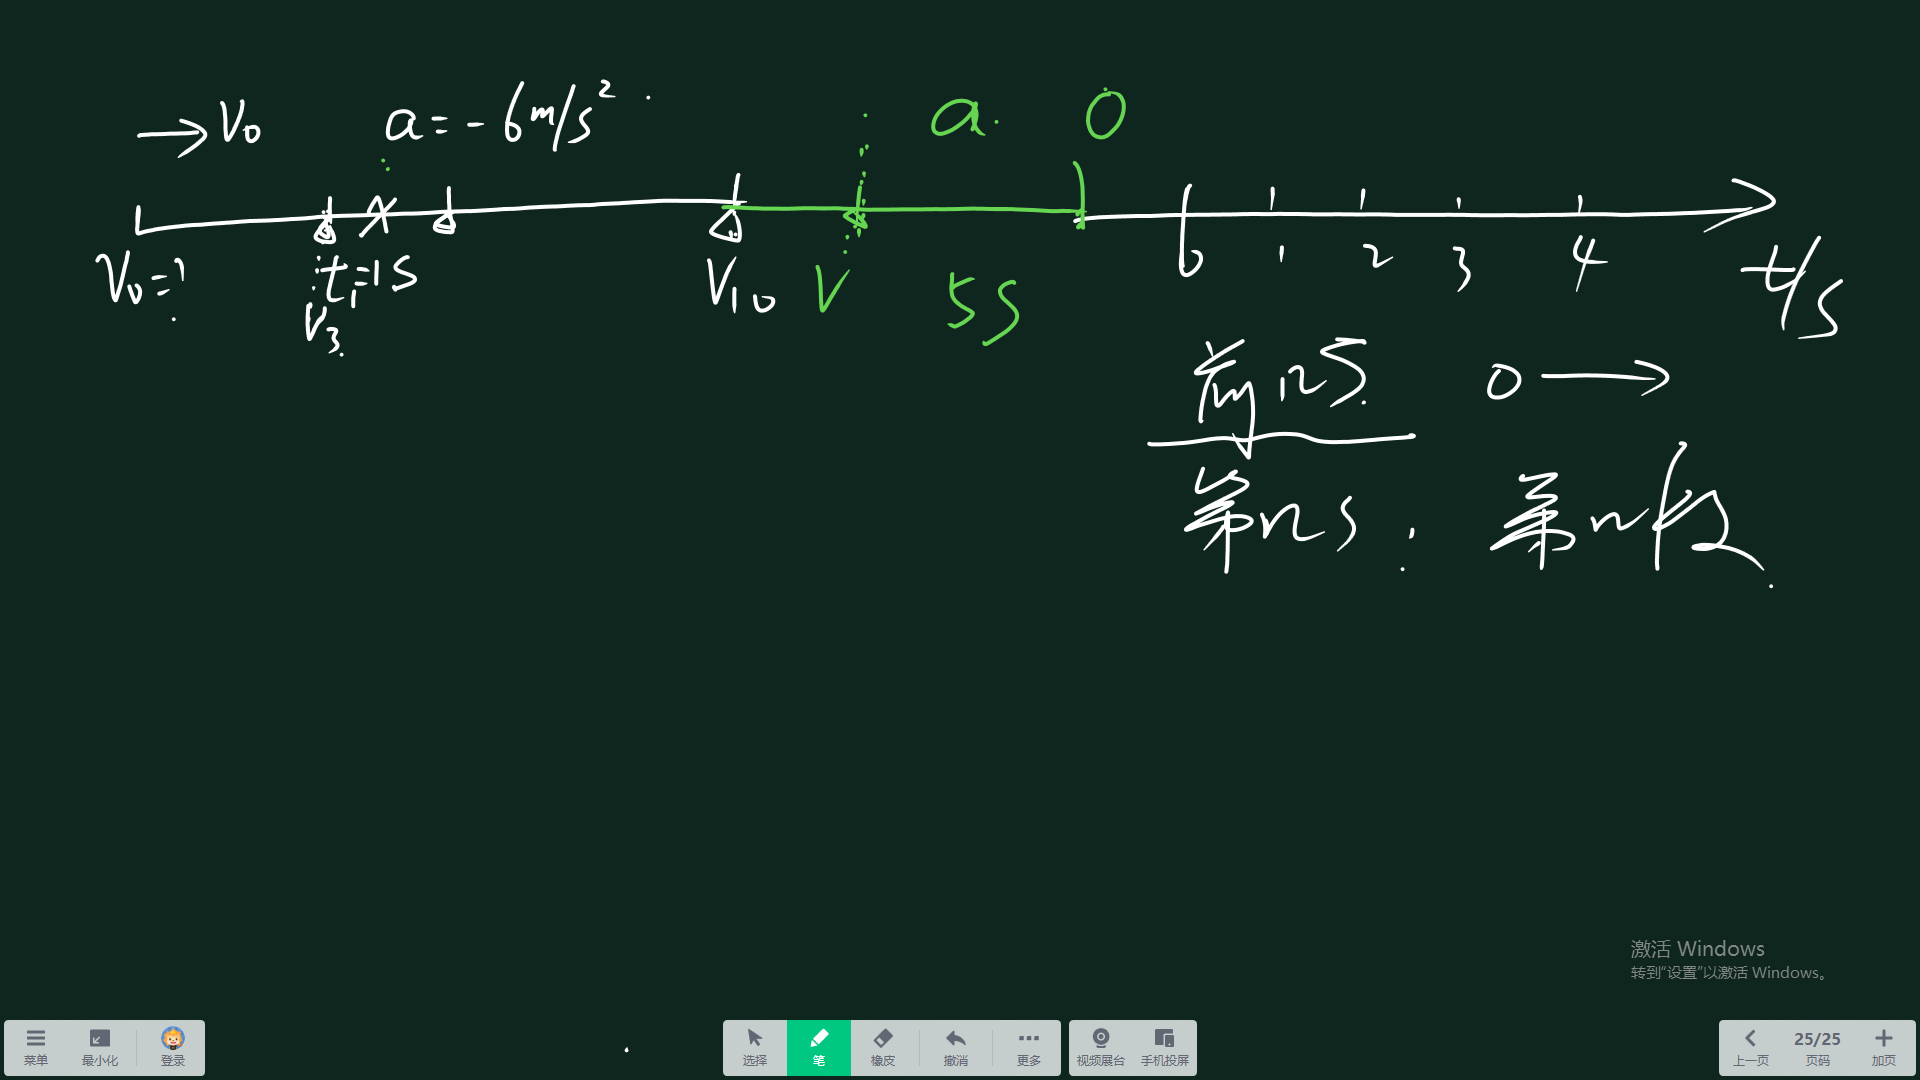 →V₀ a=-6m/s² a 0
V₀=? t₁=1s V₁₀ V 5s 0 1 2 3 4 t/s
V₃
前ns 0→
第ns 第n段
激活 Windows
转到“设置”以激活 Windows。
菜单 最小化 登录 选择 笔 橡皮 撤消 更多 视频展台 手机投屏 上一页 25/25 页码 加页